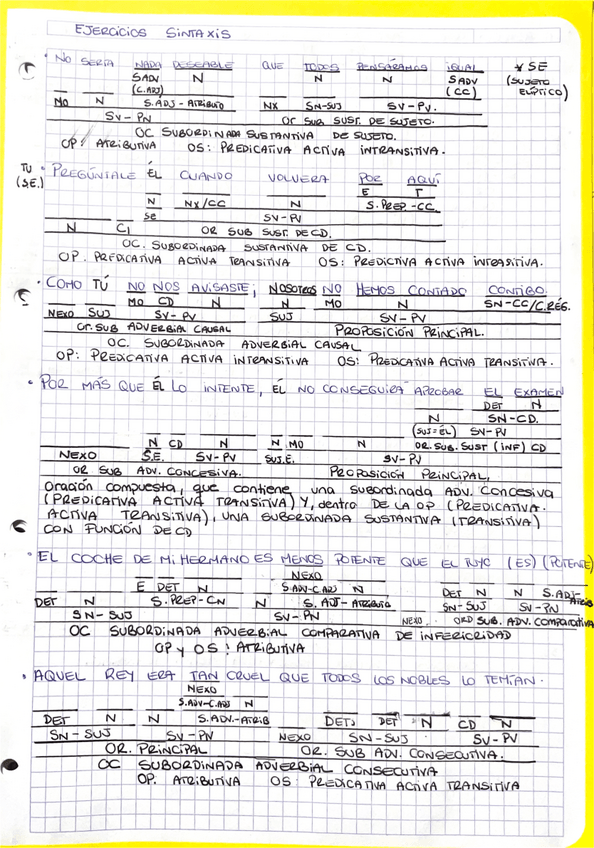 EJERCICIOS SINTAXIS
· NO SERÍA NADA DESEABLE QUE TODOS PENSÁRAMOS IGUAL * SE
SADV N N N SADV (SUJETO
(C.ADJ) (CC) ELÍPTICO)
MO N S.ADJ - ATRIBUTO NX SN-SUJ SV-PV.
SV-PN Or SUB SUST. DE SUJETO.
OC SUBORDINADA SUSTANTIVA DE SUJETO.
OP: ATRIBUTIVA OS: PREDICATIVA ACTIVA INTRANSITIVA.
TU · PREGÚNTALE ÉL CUANDO VOLVERA POR AQUÍ
(S.E.) E T
N NX/CC N S.PREP.-CC
SE SV-PV
N CI OR SUB SUST. DE CD.
OC. SUBORDINADA SUSTANTIVA DE CD.
OP. PREDICATIVA ACTIVA TRANSITIVA OS: PREDICTIVA ACTIVA INTRASITIVA.
· COMO TÚ NO NOS AVISASTE, NOSOTROS NO HEMOS CONTADO CONTIGO.
MO CD N N MO N SN-CC/C.RÉG.
NEXO SUJ SV-PV SUJ SV-PV
Or. SUB ADVERBIAL CAUSAL PROPOSICIÓN PRINCIPAL.
OC. SUBORDINADA ADVERBIAL CAUSAL
OP: PREDICATIVA ACTIVA INTRANSITIVA OS: PREDICATIVA ACTIVA TRANSITIVA.
· POR MÁS QUE ÉL LO INTENTE, ÉL NO CONSEGUIRÁ APROBAR EL EXAMEN
DET N
N SN-CD.
(SUJ=ÉL) SV-PV
N CD N N MO N OR. SUB. SUST (INF) CD
NEXO S.E. SV-PV SUJ.E. SV-PV
OR SUB ADV. CONCESIVA. PROPOSICIÓN PRINCIPAL,
Oración compuesta, que contiene una subordinada ADV. Concesiva
(PREDICATIVA ACTIVA TRANSITIVA) Y, dentro DE LA OP (PREDICATIVA.
ACTIVA TRANSITIVA), UNA SUBORDINADA SUSTANTIVA (TRANSITIVA)
CON FUNCIÓN DE CD
· EL COCHE DE MI HERMANO ES MENOS POTENTE QUE EL TUYO (ES) (POTENTE)
NEXO
E DET N S.ADV-C.ADJ N DET N N S.ADJ-
DET N S.PREP-CN N S. ADJ-ATRIBUTO SN-SUJ SV-PN
SN-SUJ SV-PN NEXO. ORD SUB. ADV. COMPARATIVA
OC SUBORDINADA ADVERBIAL COMPARATIVA DE INFERIORIDAD
OP Y OS: ATRIBUTIVA
· AQUEL REY ERA TAN CRUEL QUE TODOS LOS NOBLES LO TEMÍAN.
NEXO
S.ADV-C.ADJ N
DET N N S.ADV.-ATRIB DET DET N CD N
SN-SUJ SV-PN NEXO SN-SUJ SV-PV
OR. PRINCIPAL OR. SUB ADV. CONSECUTIVA.
OC SUBORDINADA ADVERBIAL CONSECUTIVA
OP. ATRIBUTIVA OS: PREDICATIVA ACTIVA TRANSITIVA